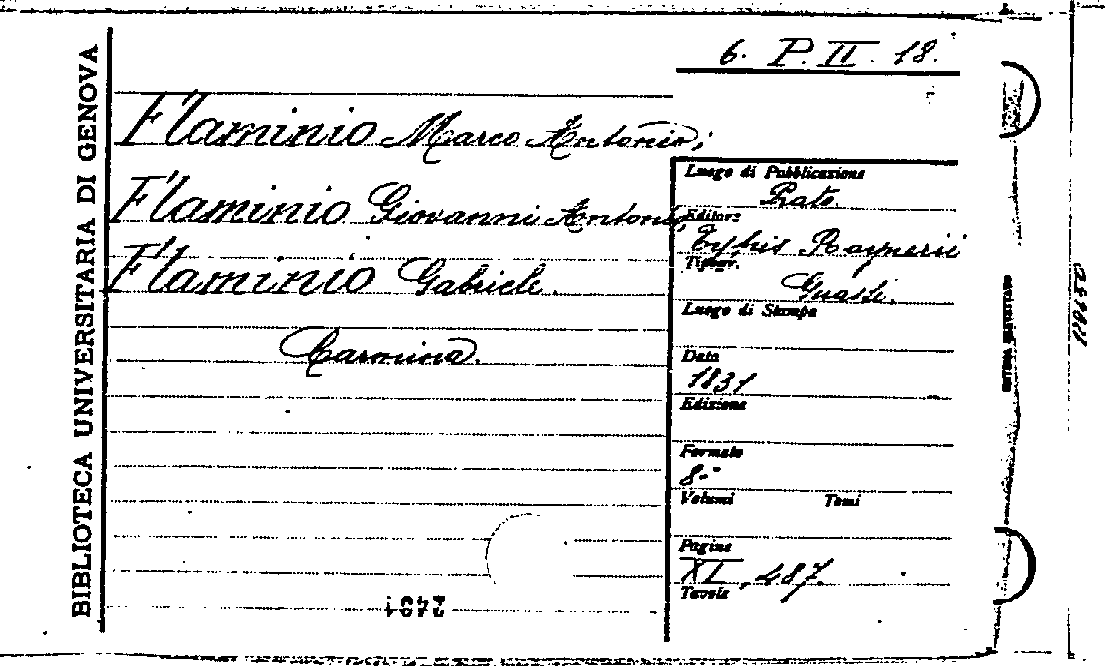 BIBLIOTECA UNIVERSITARIA DI GENOVA
6. P. II. 18.
Flaminio Marco Antonio;
Flaminio Giovanni Antonio,
Flaminio Gabriele.
Carmina.
Luogo di Pubblicazione
Prato
Editore
Typis Raynerii
Tipogr.
Guasti.
Luogo di Stampa
Data
1831
Edizione
Formato
8.°
Volumi Tomi
Pagine
XI, 487.
Tavole